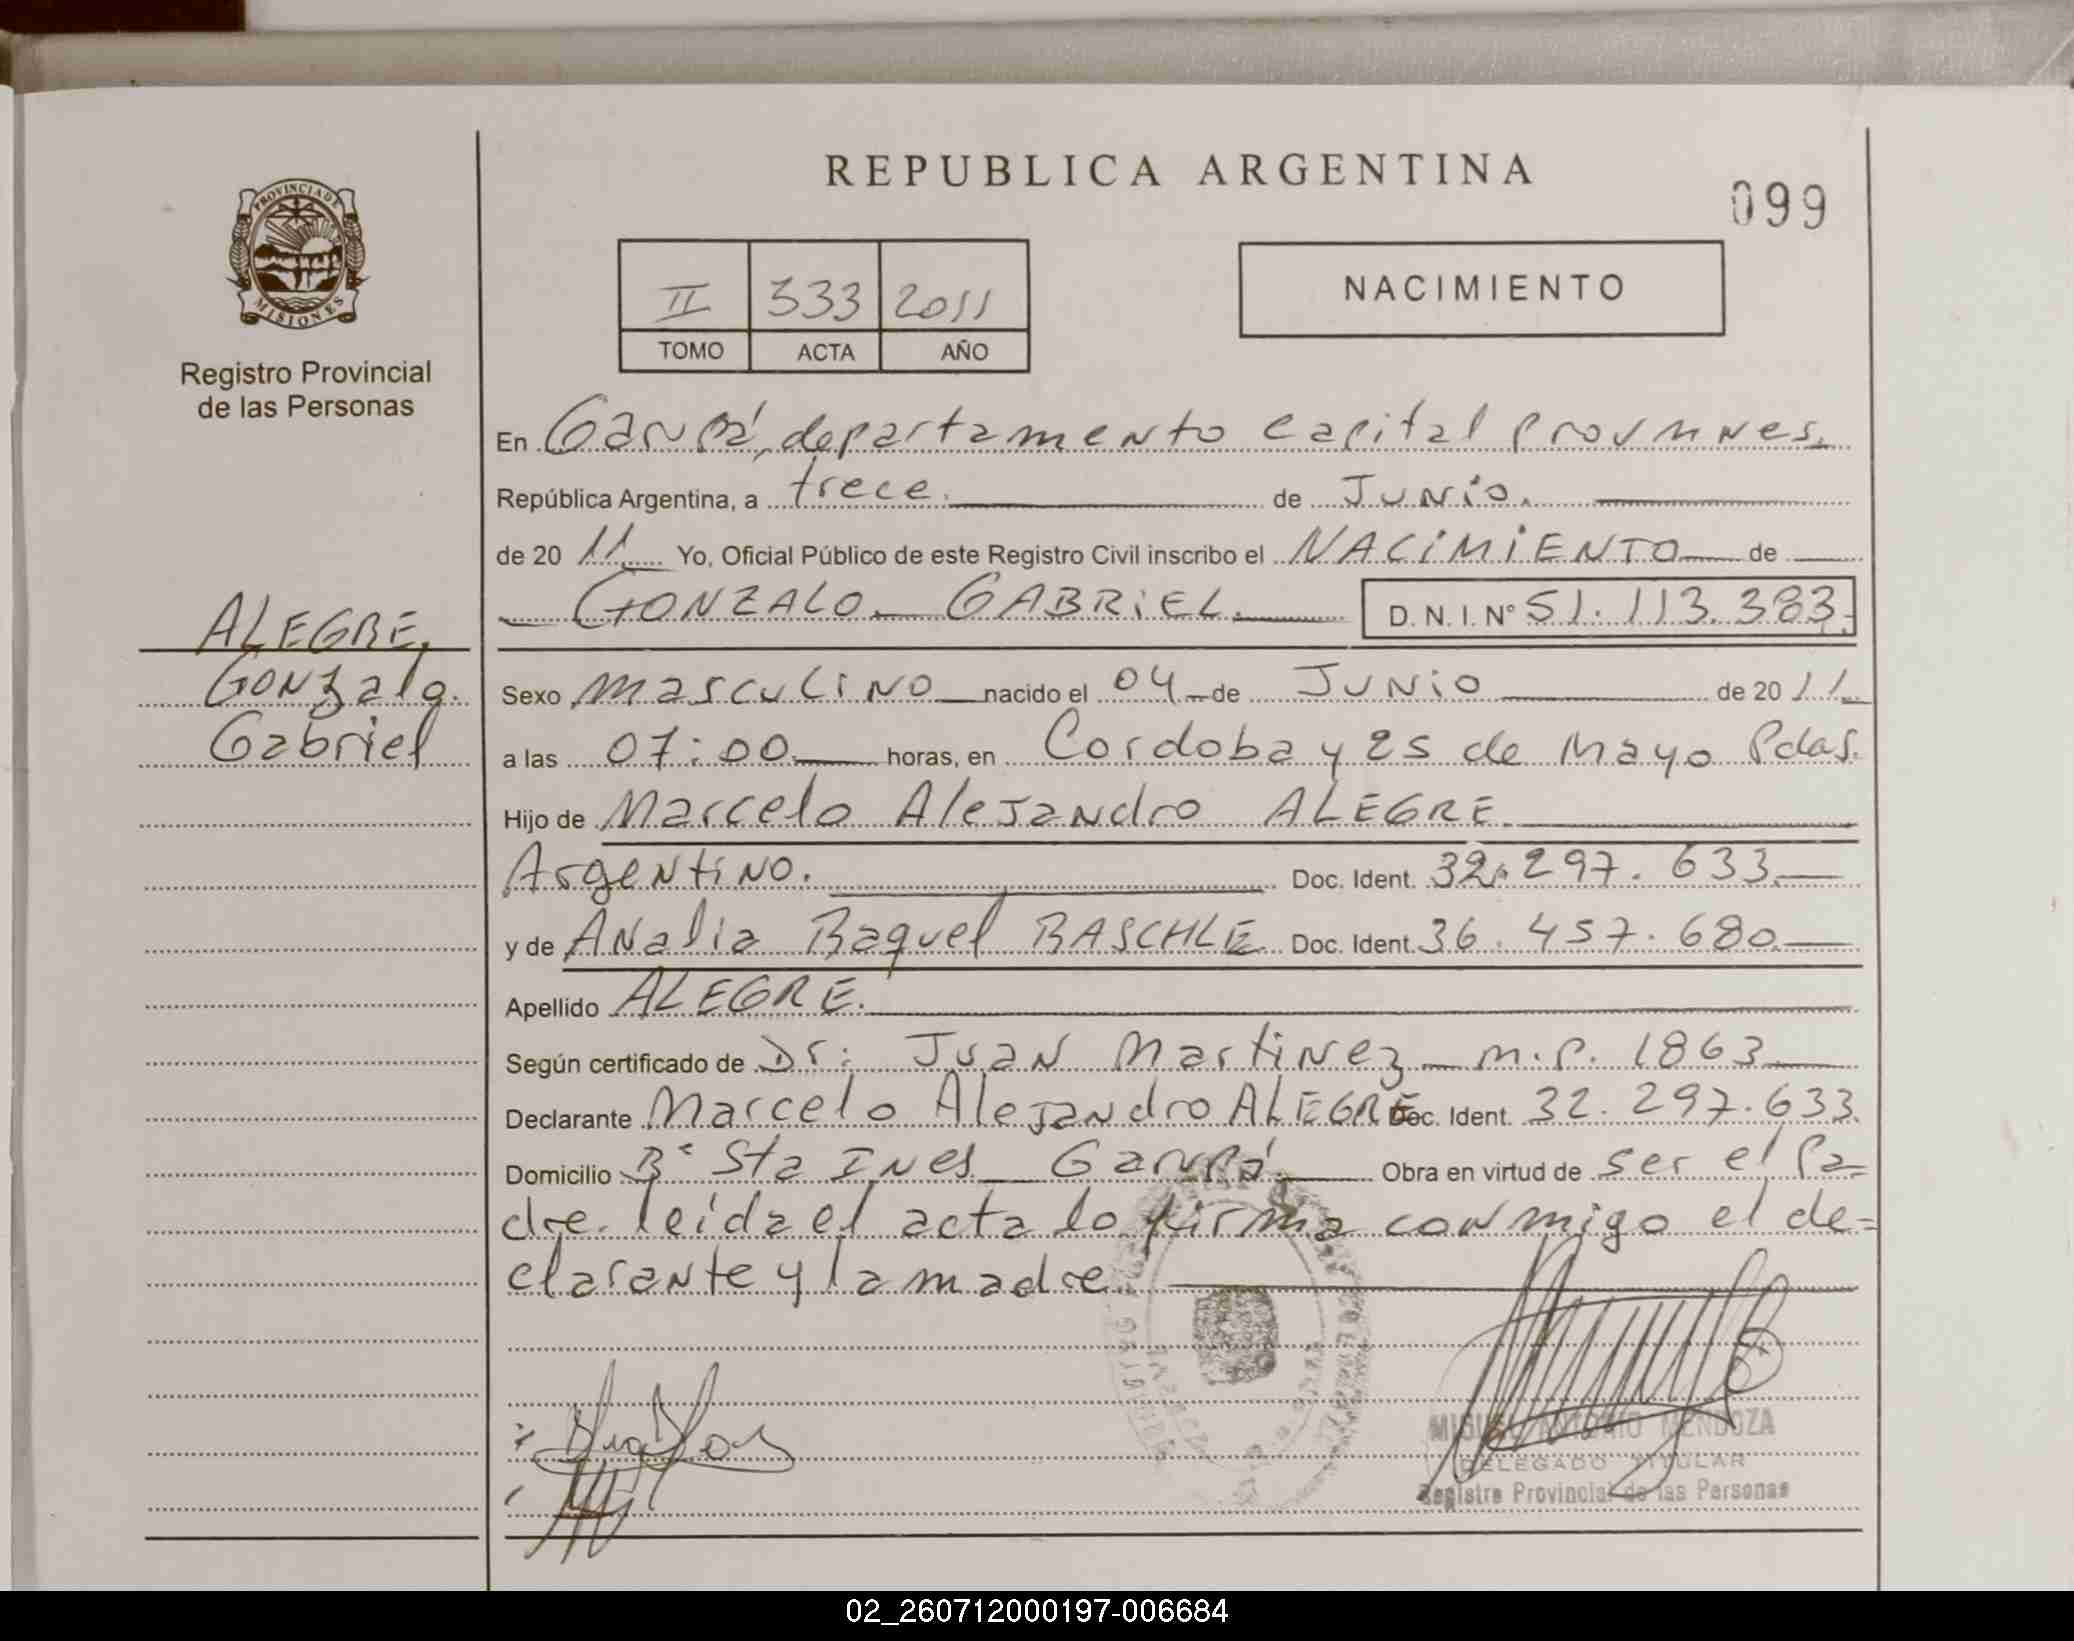 REPUBLICA ARGENTINA
099
PROVINCIA DE
MISIONES
Registro Provincial
de las Personas
II 333 2011
TOMO ACTA AÑO
NACIMIENTO
En Garupá, departamento capital Prov Mnes.
República Argentina, a trece. de Junio.
de 20 11 Yo, Oficial Público de este Registro Civil inscribo el NACIMIENTO de
GONZALO GABRIEL. D. N. I. Nº 51.113.383.
ALEGRE,
Gonzalo
Gabriel
Sexo masculino nacido el 04 de Junio de 20 11
a las 07:00 horas, en Cordoba y 25 de Mayo Pdas.
Hijo de Marcelo Alejandro ALEGRE
Argentino. Doc. Ident. 32.297.633.
y de Analia Raquel BASCHLE Doc. Ident. 36.457.680
Apellido ALEGRE.
Según certificado de Dr: Juan Martinez m.p. 1863
Declarante Marcelo Alejandro ALEGRE Doc. Ident. 32.297.633.
Domicilio Bº Sta Ines Garupá Obra en virtud de ser el Pa-
dre. leida el acta lo firma conmigo el de=
clarante y la madre.
MIGUEL ANTONIO MENDOZA
DELEGADO TITULAR
Registro Provincial de las Personas
02_260712000197-006684